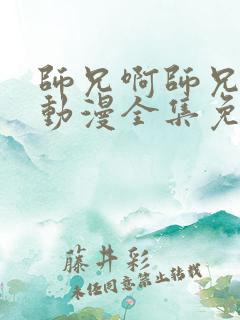 師兄啊師兄
動漫全集免
藤井彩
未经同意禁止转载